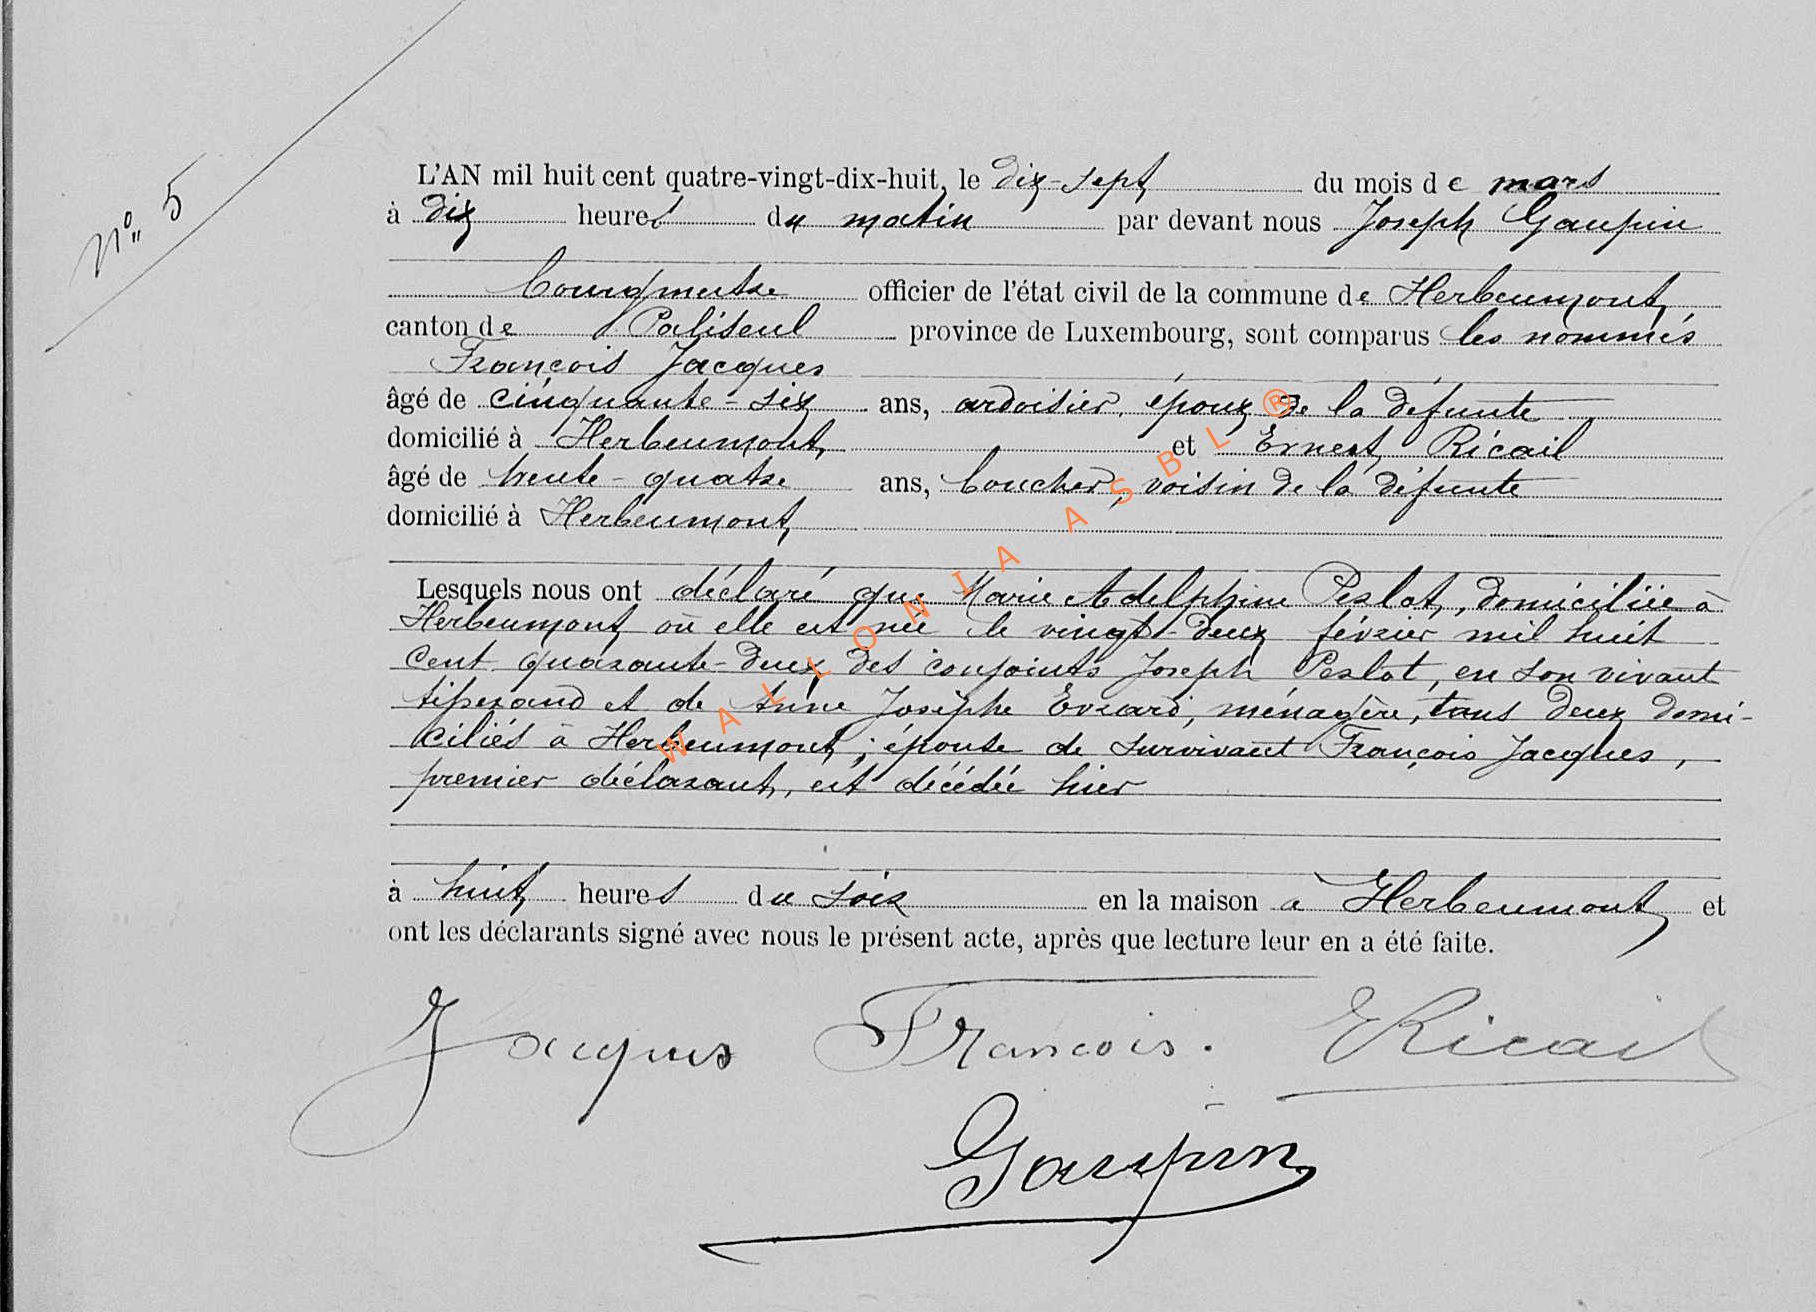 N° 5
L'AN mil huit cent quatre-vingt-dix-huit, le dix-sept du mois de mars
à dix heures du matin par devant nous Joseph Gaupin
bourgmestre officier de l'état civil de la commune de Herbeumont
canton de Paliseul province de Luxembourg, sont comparus les nommés
François Jacques
âgé de cinquante-six ans, ardoisier, époux de la défunte
domicilié à Herbeumont, et Ernest Ricail
âgé de trente-quatre ans, boucher, voisin de la défunte
domicilié à Herbeumont
Lesquels nous ont déclaré que Marie Adelphine Peslot, domiciliée à
Herbeumont où elle est née le vingt-deux février mil huit
cent quarante-deux des conjoints Joseph Peslot, en son vivant
tisserand et de Anne Josèphe Evrard, ménagère, tous deux domi-
ciliés à Herbeumont; épouse de survivant François Jacques,
premier déclarant, est décédée hier
à huit heures du soir en la maison à Herbeumont et
ont les déclarants signé avec nous le présent acte, après que lecture leur en a été faite.
Jacques Francois. E Ricail
Gaupin
WALLONIA ASBL ®